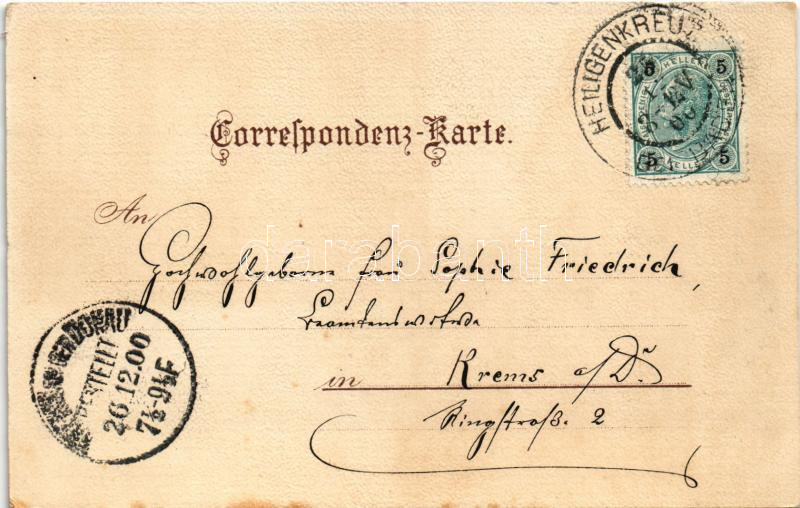 HEILIGENKREUZ
5 HELLER 5
5 HELLER 5
Correspondenz-Karte.
An
Hochwohlgeborne Frau Sophie Friedrich,
Beamtenswitwe
in Krems a/Dr.
Ringstraße 2
DONAU
BESTELLT
26.12.00
7½-9½F
darabanth.com